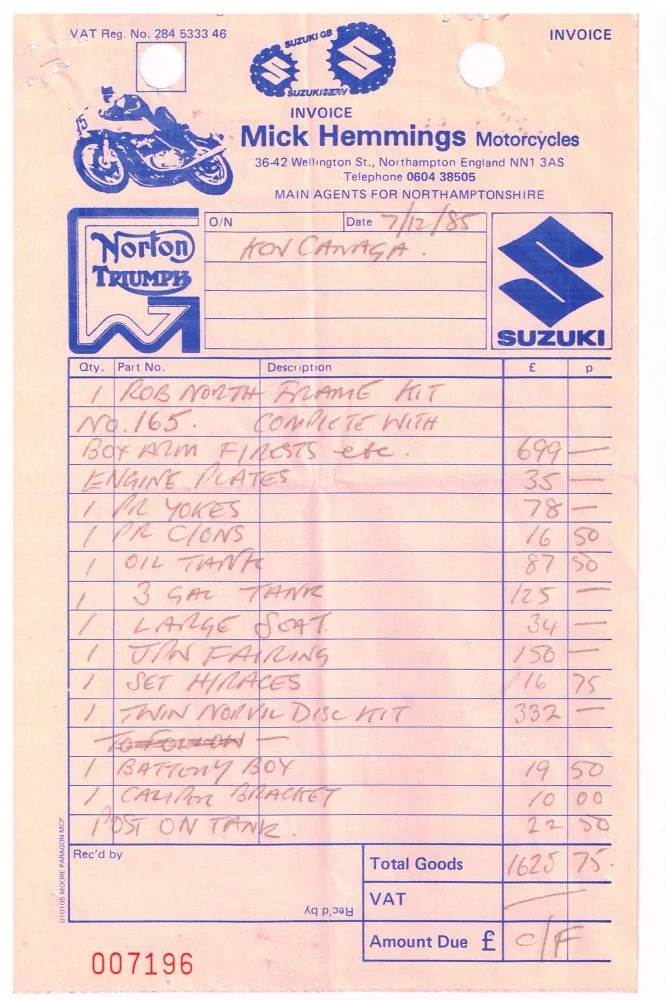 VAT Reg. No. 284 5333 46
INVOICE
SUZUKI GB
INVOICE
Mick Hemmings Motorcycles
36-42 Wellington St., Northampton England NN1 3AS
Telephone 0604 38505
MAIN AGENTS FOR NORTHAMPTONSHIRE
O/N Date 7/12/85
Norton
TRIUMPH
SUZUKI
Qty. Part No. Description £ p
1 ROB NORTH FRAME KIT
NO. 165. COMPLETE WITH
BOX ARM F/RESTS etc. 699 —
ENGINE PLATES 35 —
1 PR YOKES 78 —
1 PR C/ONS 16 50
1 OIL TANK 87 50
1 3 GAL TANK 125 —
1 LARGE SEAT. 34 —
1 JPN FAIRING 150 —
1 SET H/RACES 16 75
1 TWIN NORVIL DISC KIT 332 —
TO FOLLOW —
1 BATTERY BOX 19 50
1 CALIPER BRACKET 10 00
POST ON TANK. 22 50
Rec'd by
Total Goods 1625 75.
VAT —
Rec'd by
Amount Due £ C/F
007196
010105 MOORE PARAGON MCP